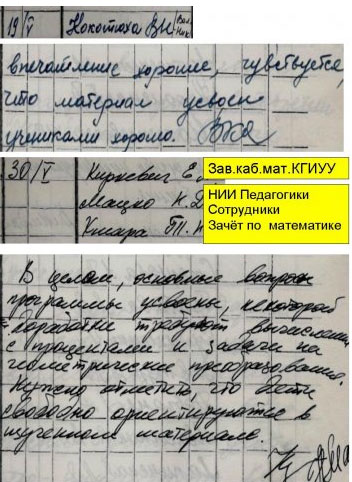 19/V Нокотюха ВН Вал. Ник.
впечатление хорошее, чувствуется,
что материал усвоен
учениками хорошо.
30/V Киркевич Е.
Зав.каб.мат.КГИУУ
Мацко Н.Д.
НИИ Педагогики
Сотрудники
Зачёт по математике
Хмара Т.Н
В целом, основные вопросы
программы усвоены, некоторой
доработки требуют вычисления
с процентами и задачи на
геометрические преобразования.
Нужно отметить, что дети
свободно ориентируются в
изученном материале.